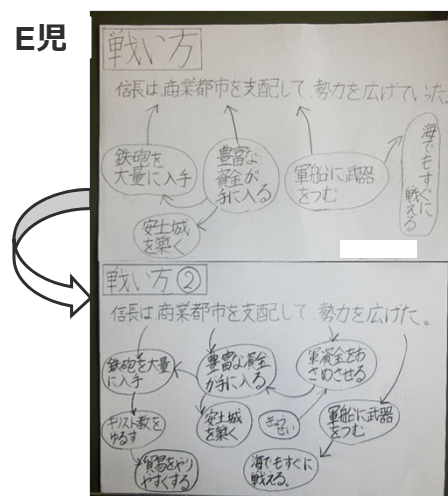 E児
戦い方
信長は、商業都市を支配して、勢力を広げていった。
鉄砲を
大量に入手
豊富な
資金が
手に入る
軍船に武器
をつむ
海でもすぐに
戦える
安土城
を築く
戦い方②
信長は商業都市を支配して、勢力を広げた。
鉄砲を大量
に入手
豊富な資金
が手に入る
軍資金をお
さめさせる
キリスト教を
ゆるす
安土城
を築く
きょう
せい
軍船に武器
をつむ
貿易をやり
やすくする
海でもすぐに
戦える。